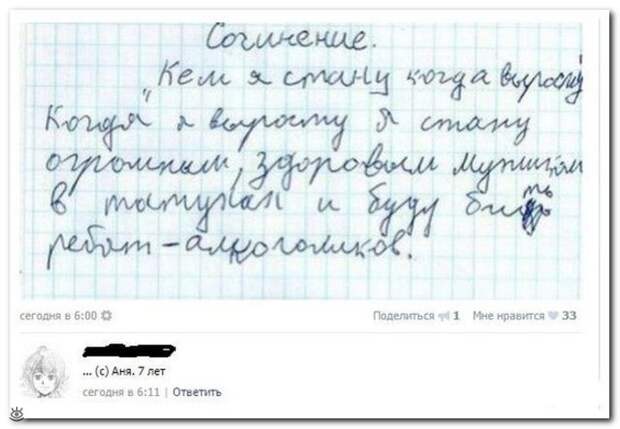 Сочинение.
"Кем я стану когда вырасту
Когда я вырасту я стану
огромным, здоровым мужиком
в татухах и буду бить
ребят-алкоголиков.
сегодня в 6:00
Поделиться 1 Мне нравится 33
... (c) Аня. 7 лет
сегодня в 6:11 | Ответить